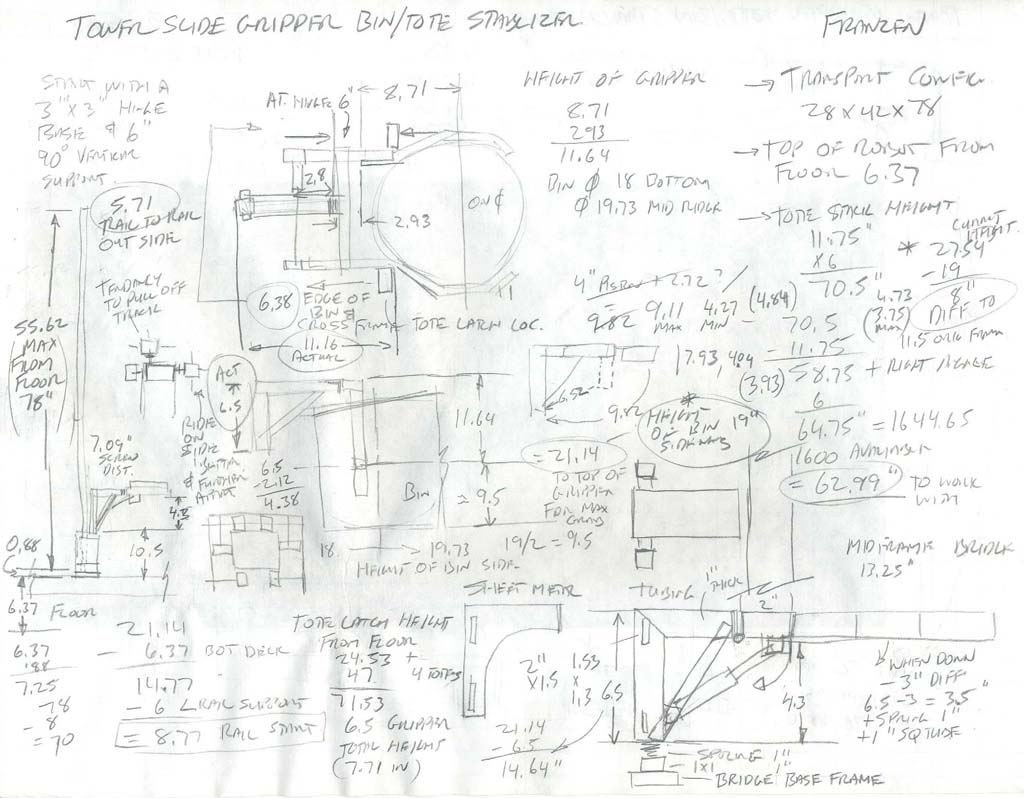 TOWER SLIDE GRIPPER BIN/TOTE STABLIZER
FRANZEN
START WITH A
3" X 3" HINGE
BASE & 6"
90° VERTICAL
SUPPORT.
5.71
RAIL TO RAIL
OUT SIDE
TENDANCY
TO PULL OFF
TRACK
55.62
MAX
FROM
FLOOR
78"
7.09"
SCREW
DIST.
4.3
10.5
0.88
6.37 FLOOR
6.37
.88
7.25
-78
-8
= 70
AT HINGE 6"
8.71
2.8
2.93
ON ¢
6.38
EDGE OF
BIN &
CROSS FRAME TOTE LATCH LOC.
11.16
ACTUAL
ACT
6.5
RIDE
ON
SIDE
6.5
-2.12
4.38
BIN
11.64
= 9.5
18 → 19.73
19/2 = 9.5
HEIGHT OF BIN SIDE
HEIGHT OF GRIPPER
8.71
2.93
11.64
BIN ϕ 18 BOTTOM
ϕ 19.73 MID RIDGE
4" PISTON + 2.72?
9.82
9.11
MAX
4.27
MIN
(4.84)
6.52
9.82
7.93, 4.04
(3.93)
HEIGHT
OF BIN 19"
= 21.14
TO TOP OF
GRIPPER
FOR MAX
GRAB
→ TRANSPORT CONFIG.
28 X 42 X 78
→ TOP OF ROBOT FROM
FLOOR 6.37
→ TOTE STACK HEIGHT
11.75"
X 6
70.5"
CURRENT
HEIGHT.
* 27.54
- 19
8"
DIFF TO
11.5 ORIG FRAM
4.73
(3.75)
MAX
- 70.5
11.75
58.75
6
64.75" = 1644.65
1600 AVAILABLE
= 62.99" TO WORK
WITH
MIDFRAME BRIDGE
13.25"
21.14
- 6.37 BOT DECK
14.77
- 6 ∠ RAIL SUPPORT
= 8.77 RAIL START
TOTE LATCH HEIGHT
FROM FLOOR
24.53 +
47 4 TOTES
71.53
6.5 GRIPPER
TOTAL HEIGHT
(7.71 IN)
SHEET METAL
2"
X 1.5
1.53
X
1.3
6.5
21.14
- 6.5
14.64"
TUBING 1" THICK
2"
4.3
WHEN DOWN
- 3" DIFF
6.5 - 3 = 3.5"
+ SPRING 1"
+ 1" SQ TUBE
SPRING 1"
1X1 1"
BRIDGE BASE FRAME